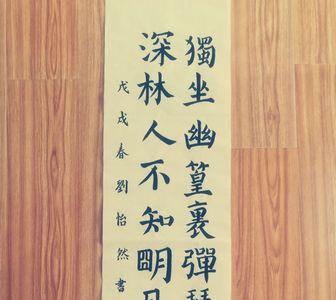 獨坐幽篁裏彈
深林人不知明
戊戌春劉怡然書